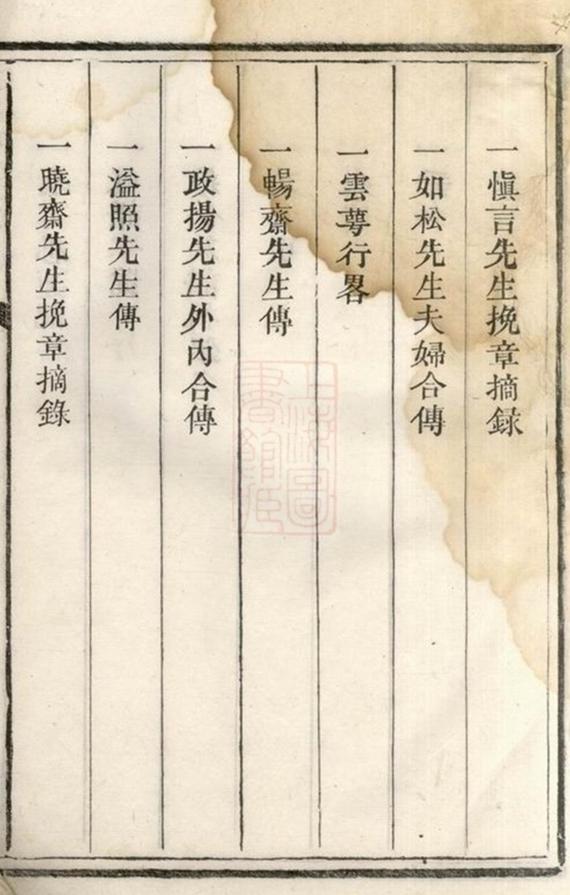 一慎言先生挽章摘録
一如松先生夫婦合傳
一雲萼行畧
一暢齋先生傳
一政揚先生外內合傳
一溢照先生傳
一曉齋先生挽章摘錄
上海圖書館藏